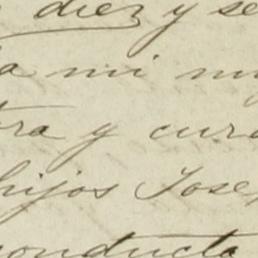 diez y se
a mi m
ra y cura
hijos Jose
conducta